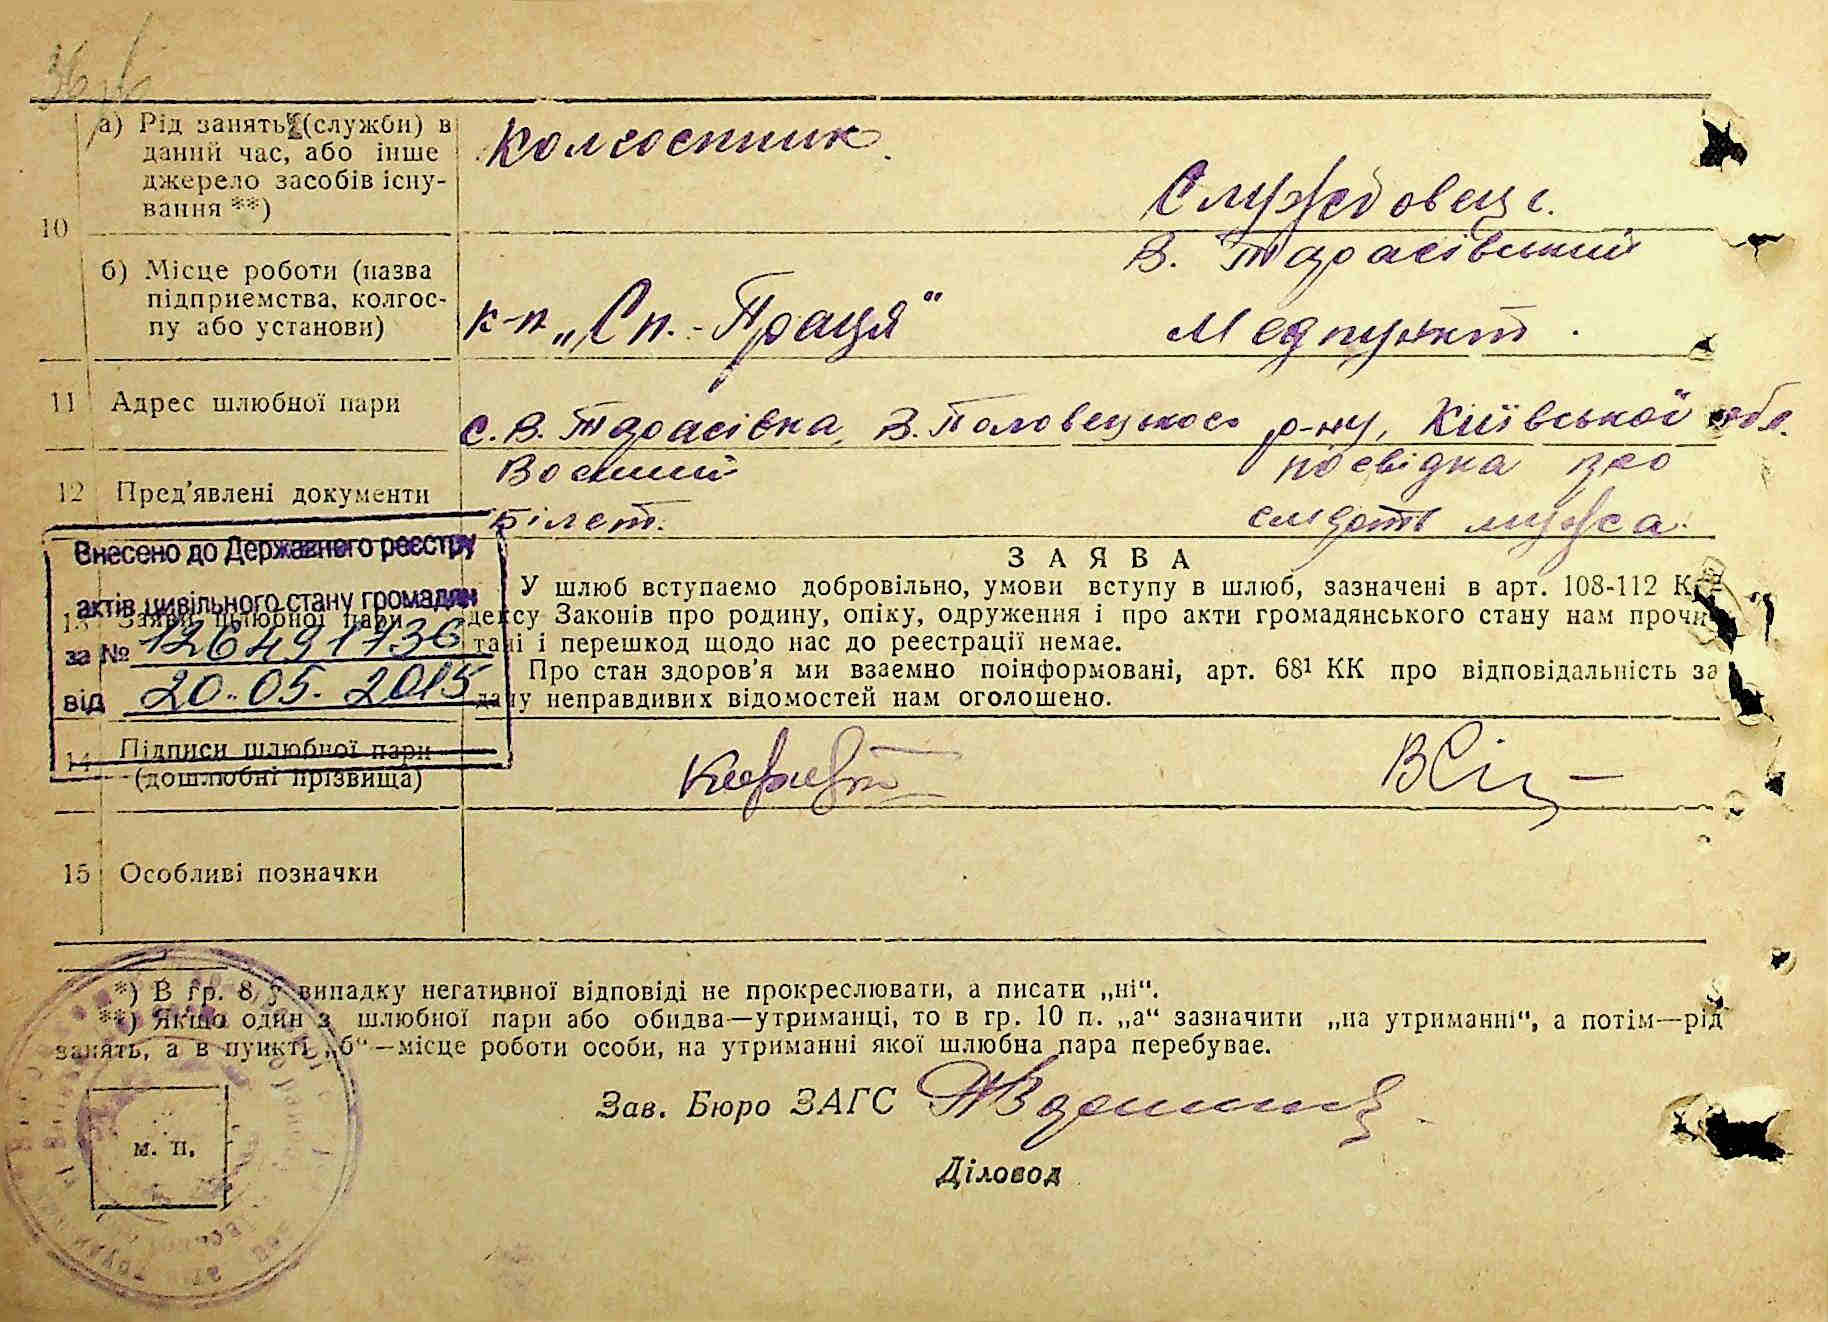 10
а) Рід занять (служби) в
даний час, або інше
джерело засобів існу-
вання **)
Колгоспник.
Службовець.
б) Місце роботи (назва
підприємства, колгос-
пу або установи)
к-п „Сп.-Праця"
В. Тарасівський
Медпункт.
11 Адрес шлюбної пари
с. В. Тарасівка, В. Половецького р-ну, Київської обл.
12 Пред'явлені документи
Воєнний
білет.
посвідка про
смерть мужа.
Внесено до Державного реєстру
актів цивільного стану громадян
за № 126491736
від 20.05.2015
13 Заяви шлюбної пари
ЗАЯВА
У шлюб вступаємо добровільно, умови вступу в шлюб, зазначені в арт. 108-112 Ко-
дексу Законів про родину, опіку, одруження і про акти громадянського стану нам прочи-
тані і перешкод щодо нас до реєстрації немає.
Про стан здоров'я ми взаємно поінформовані, арт. 68¹ КК про відповідальність за
дачу неправдивих відомостей нам оголошено.
14 Підписи шлюбної пари
(дошлюбні прізвища)
15 Особливі позначки
*) В гр. 8 у випадку негативної відповіді не прокреслювати, а писати „ні".
**) Якщо один з шлюбної пари або обидва—утриманці, то в гр. 10 п. „а" зазначити „на утриманні", а потім—рід
занять, а в пункті „б"—місце роботи особи, на утриманні якої шлюбна пара перебуває.
Зав. Бюро ЗАГС
м. п.
Діловод